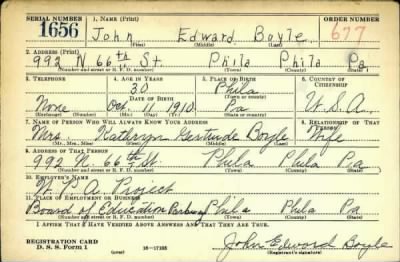 SERIAL NUMBER 1. NAME (Print) ORDER NUMBER
1656 John Edward Boyle 677
(First) (Middle) (Last)
2. ADDRESS (Print)
992 N 66th St. Phila Phila Pa
(Number and street or R. F. D. number) (Town) (County) (State)
3. TELEPHONE 4. AGE IN YEARS 5. PLACE OF BIRTH 6. COUNTRY OF CITIZENSHIP
30 Phila
DATE OF BIRTH (Town or county)
None Oct. 11 1910 Pa U.S.A.
(Exchange) (Number) (Mo.) (Day) (Yr.) (State or country)
7. NAME OF PERSON WHO WILL ALWAYS KNOW YOUR ADDRESS 8. RELATIONSHIP OF THAT PERSON
Mrs. Kathryn Gertrude Boyle Wife
(Mr., Mrs., Miss) (First) (Middle) (Last)
9. ADDRESS OF THAT PERSON
992 N. 66th St. Phila Phila Pa
(Number and street or R. F. D. number) (Town) (County) (State)
10. EMPLOYER'S NAME
W.P.A. Project
11. PLACE OF EMPLOYMENT OR BUSINESS
Board of Education Parkway Phila Phila Pa
(Number and street or R. F. D. number) (Town) (County) (State)
I AFFIRM THAT I HAVE VERIFIED ABOVE ANSWERS AND THAT THEY ARE TRUE.
REGISTRATION CARD
D. S. S. Form 1 (over) John Edward Boyle
(Registrant's signature)